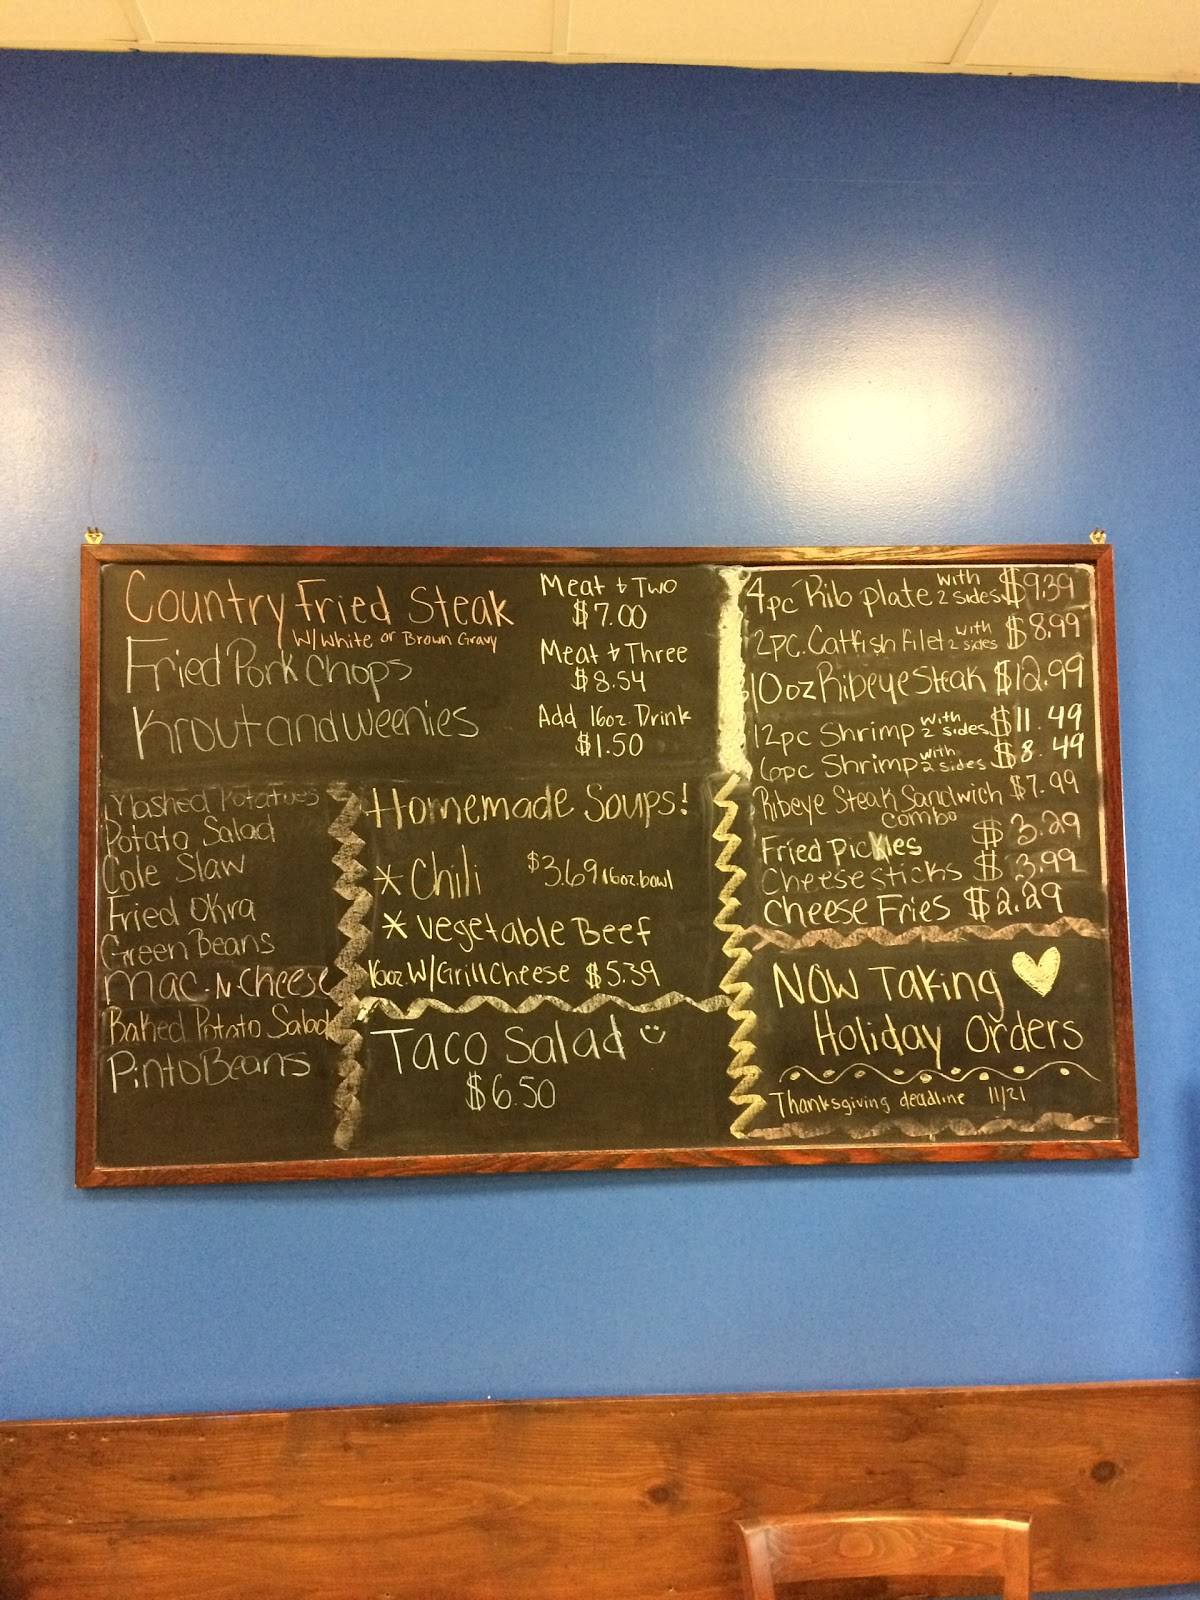 Country Fried Steak
W/White or Brown Gravy
Fried Pork Chops
Krout and weenies
Meat & Two
$7.00
Meat & Three
$8.54
Add 16oz. Drink
$1.50
Mashed Potatoes
Potato Salad
Cole Slaw
Fried Okra
Green Beans
Mac-N-Cheese
Baked Potato Salad
Pinto Beans
Homemade Soups!
* Chili $3.69 16oz. bowl
* Vegetable Beef
16oz. W/Grill Cheese $5.39
Taco Salad
$6.50
4pc Rib plate with 2 sides $9.39
2pc. Catfish Filet with 2 sides $8.99
10oz Ribeye Steak $12.99
12pc Shrimp with 2 sides $11.49
6pc Shrimp with 2 sides $8.49
Ribeye Steak Sandwich $7.99
Combo
Fried Pickles $3.29
Cheese sticks $3.99
Cheese Fries $2.29
Now Taking
Holiday Orders
Thanksgiving deadline 11/21